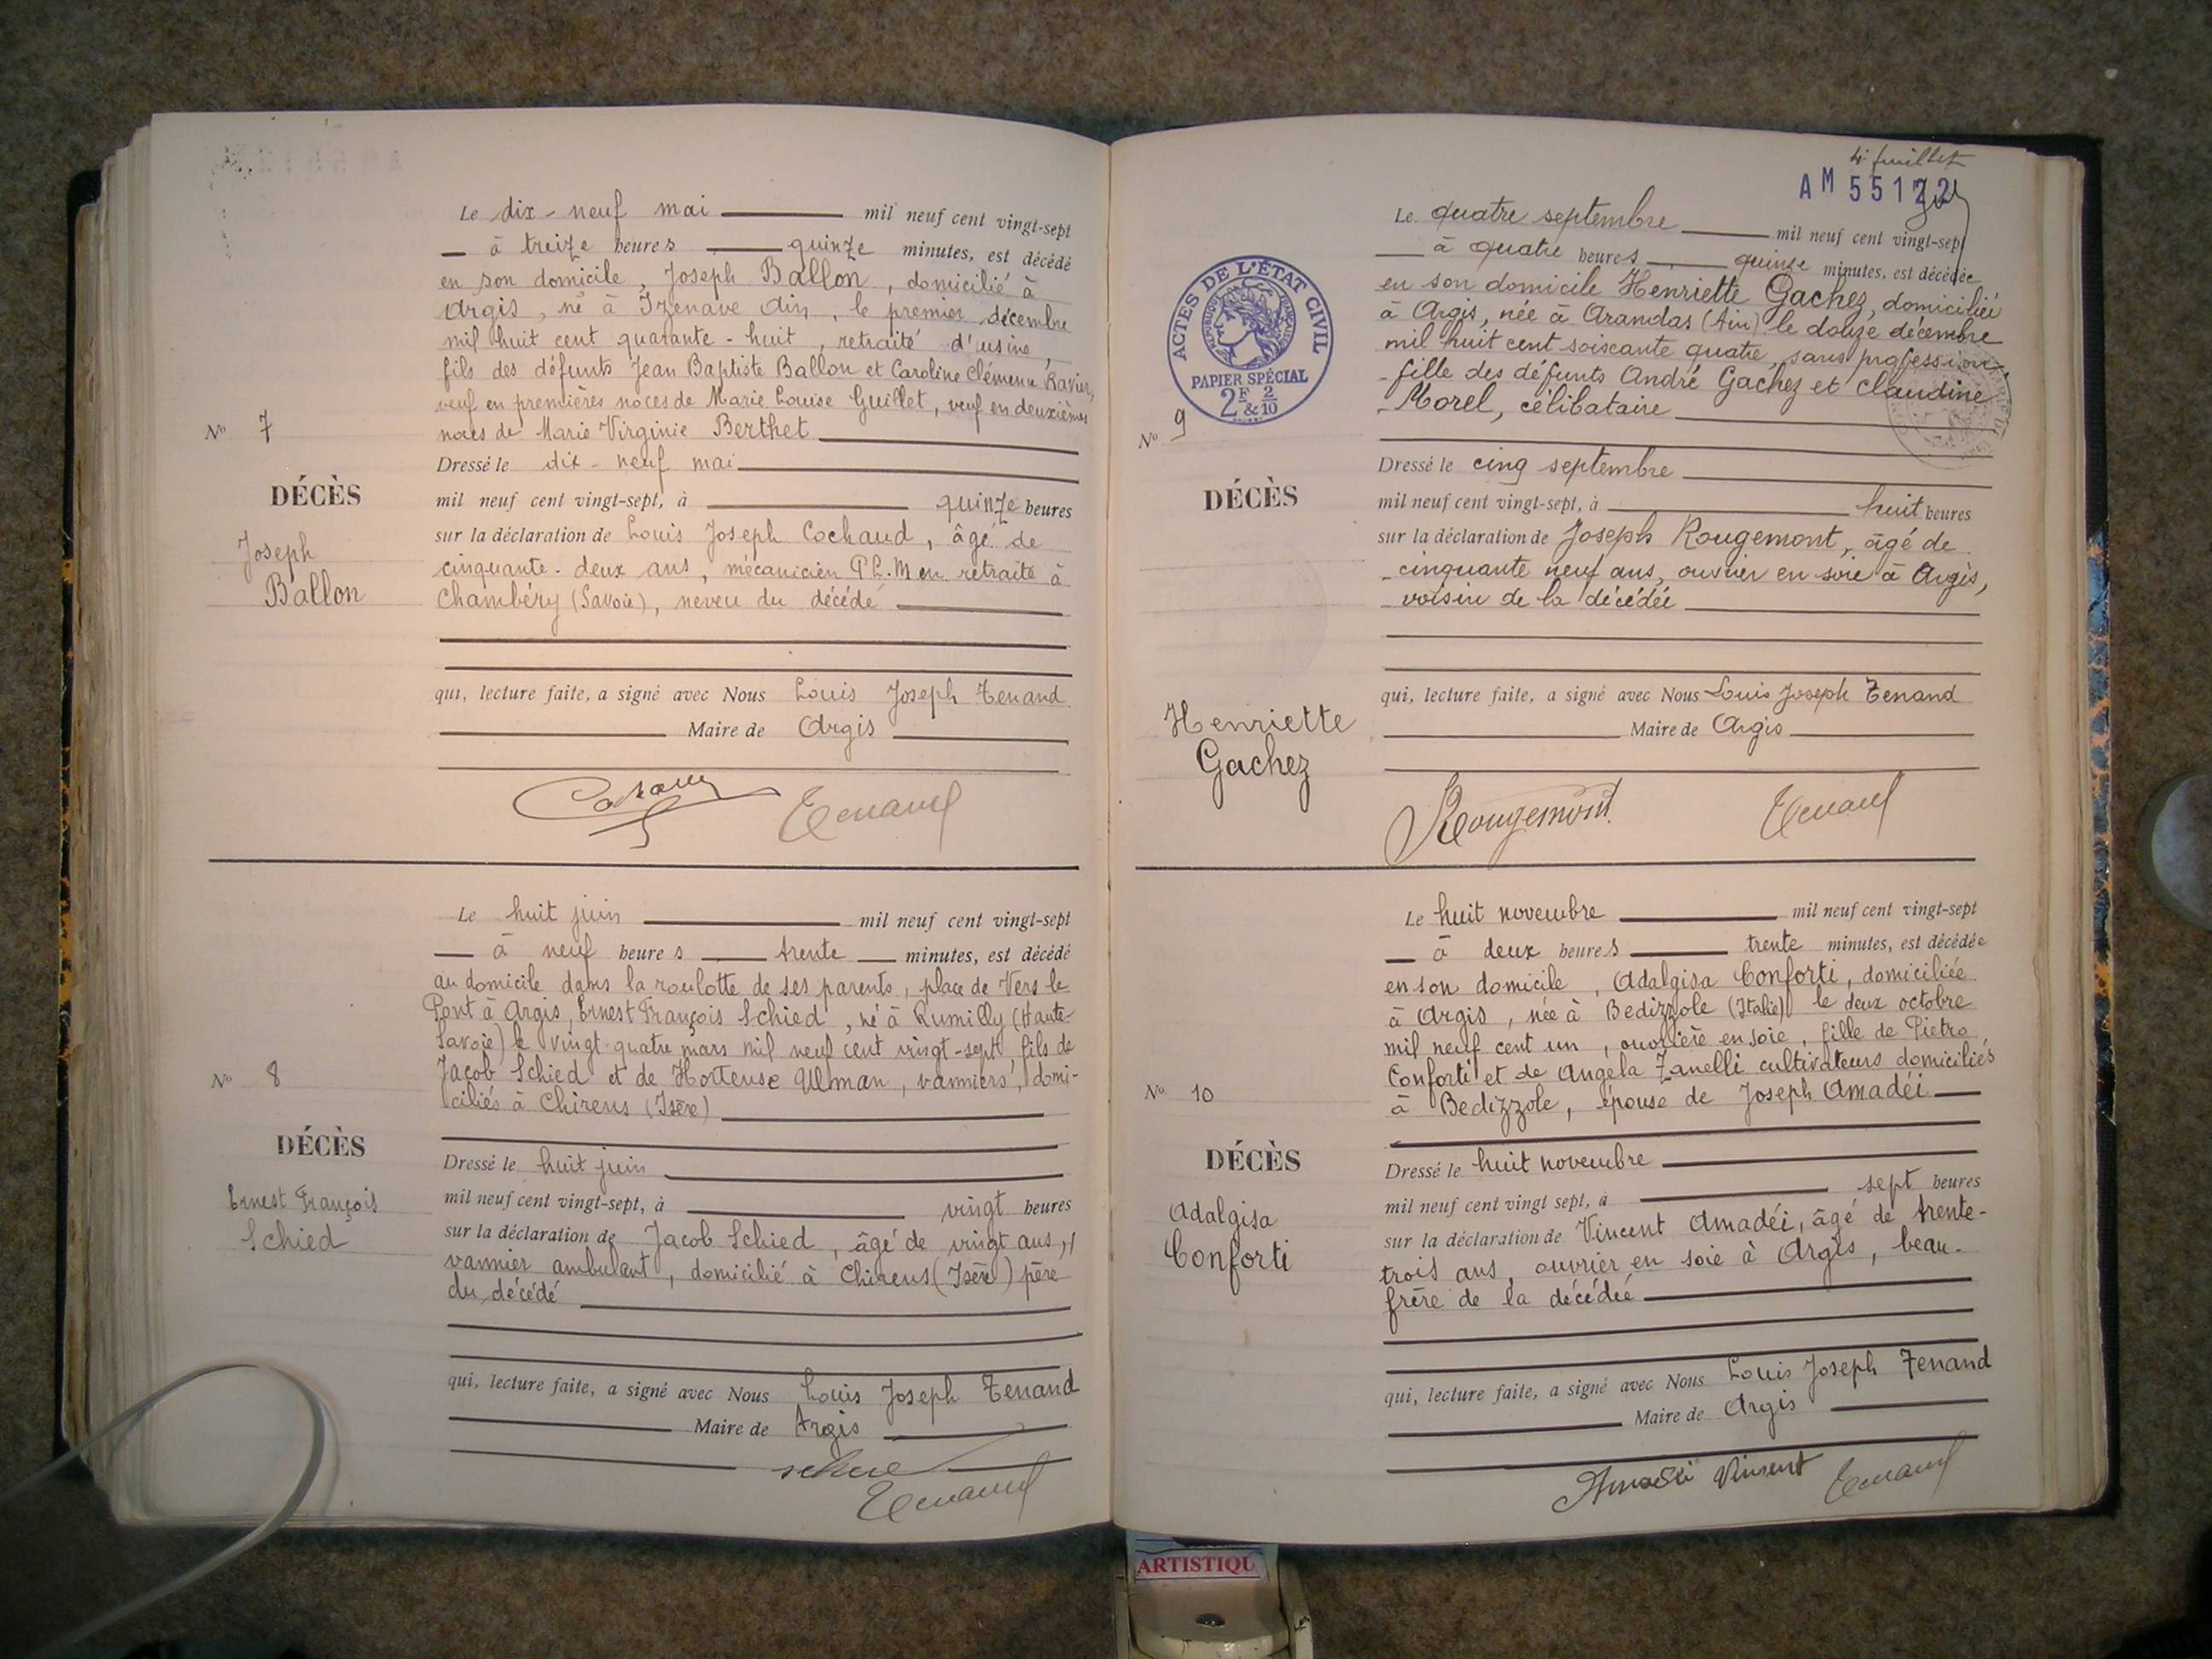 Le dix-neuf mai mil neuf cent vingt-sept
à treize heures quinze minutes, est décédé
en son domicile, Joseph Ballon, domicilié à
Argis, né à Izenave Ain, le premier décembre
mil huit cent quarante-huit, retraité d'usine,
fils des défunts Jean Baptiste Ballon et Caroline Clémence Ravier,
veuf en premières noces de Marie Louise Guillet, veuf en deuxièmes
noces de Marie Virginie Berthet
Nº 7
DÉCÈS
Joseph
Ballon
Dressé le dix-neuf mai
mil neuf cent vingt-sept, à quinze heures
sur la déclaration de Louis Joseph Cochaud, âgé de
cinquante-deux ans, mécanicien P.L.M en retraite à
Chambéry (Savoie), neveu du décédé
qui, lecture faite, a signé avec Nous Louis Joseph Tenand
Maire de Argis
Tenand
Le huit juin mil neuf cent vingt-sept
à neuf heures trente minutes, est décédé
au domicile dans la roulotte de ses parents, place de Vers le
Pont à Argis, Ernest François Schied, né à Rumilly (Haute-
Savoie) le vingt-quatre mars mil neuf cent vingt-sept, fils de
Jacob Schied et de Hortense Ulman, vanniers, domi-
ciliés à Chirens (Isère)
Nº 8
DÉCÈS
Ernest François
Schied
Dressé le huit juin
mil neuf cent vingt-sept, à vingt heures
sur la déclaration de Jacob Schied, âgé de vingt ans,
vannier ambulant, domicilié à Chirens (Isère) père
du décédé
qui, lecture faite, a signé avec Nous Louis Joseph Tenand
Maire de Argis
Tenand
4e feuillet
AM 55122
ACTES DE L'ÉTAT CIVIL
RÉPUBLIQUE FRANÇAISE
PAPIER SPÉCIAL
2F & 2/10
Le quatre septembre mil neuf cent vingt-sept
à quatre heures quinze minutes, est décédée
en son domicile Henriette Gachez, domiciliée
à Argis, née à Arandas (Ain) le douze décembre
mil huit cent soixante quatre, sans profession,
fille des défunts André Gachez et Claudine
Morel, célibataire
Nº 9
DÉCÈS
Henriette
Gachez
Dressé le cinq septembre
mil neuf cent vingt-sept, à huit heures
sur la déclaration de Joseph Rougemont, âgé de
cinquante neuf ans, ouvrier en soie à Argis,
voisin de la décédée
qui, lecture faite, a signé avec Nous Louis Joseph Tenand
Maire de Argis
Rougemont Tenand
Le huit novembre mil neuf cent vingt-sept
à deux heures trente minutes, est décédée
en son domicile, Adalgisa Conforti, domiciliée
à Argis, née à Bedizzole (Italie) le deux octobre
mil neuf cent un, ouvrière en soie, fille de Pietro
Conforti et de Angela Zanelli cultivateurs domiciliés
à Bedizzole, épouse de Joseph Amadéi
Nº 10
DÉCÈS
Adalgisa
Conforti
Dressé le huit novembre
mil neuf cent vingt sept, à sept heures
sur la déclaration de Vincent Amadéi, âgé de trente-
trois ans, ouvrier en soie à Argis, beau-
frère de la décédée
qui, lecture faite, a signé avec Nous Louis Joseph Tenand
Maire de Argis
Amadei Vincent Tenand
ARTISTIQU